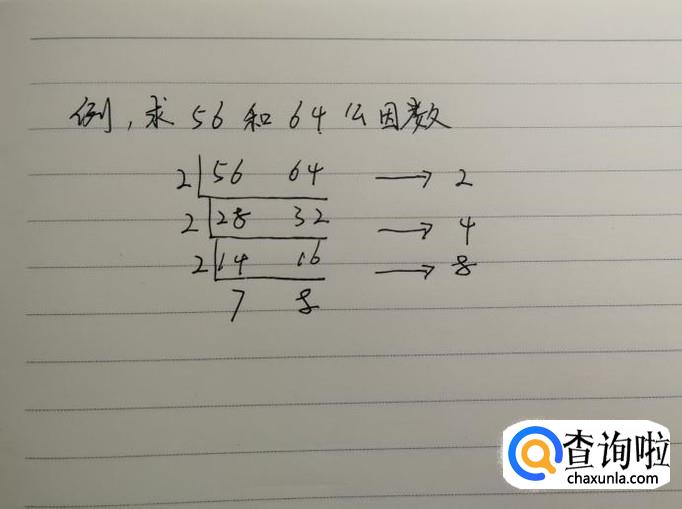 例,求56和64公因数
2 56 64 → 2
2 28 32 → 4
2 14 16 → 8
7 8
查询啦
chaxunla.com